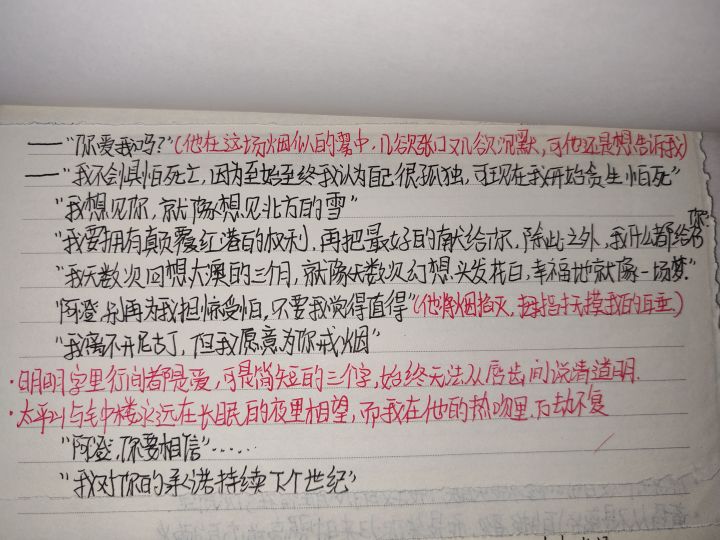 ——"你爱我吗?"(他在这场烟似的雾中,几欲张口又几欲沉默,可他还是想告诉我)
——"我不会惧怕死亡,因为至始至终我认为自己很孤独,可现在我开始贪生怕死"
"我想见你,就像想见北方的雪"
"我要拥有颠覆红港的权利,再把最好的献给你,除此之外,我什么都给你"
"我无数次回想大澳的三个月,就像无数次幻想头发花白,幸福地就像一场梦"
"阿澄,别再为我担惊受怕,只要我觉得值得"(他将烟掐灭,拇指抚摸我的耳垂)
"我离不开尼古丁,但我愿意为你戒烟"
·明明字里行间都是爱,可是简短的三个字,始终无法从唇齿间说清道明.
·太平山与钟楼永远在长眠的夜里相望,而我在他的热吻里万劫不复
"阿澄,你要相信"……
"我对你的承诺持续下个世纪"